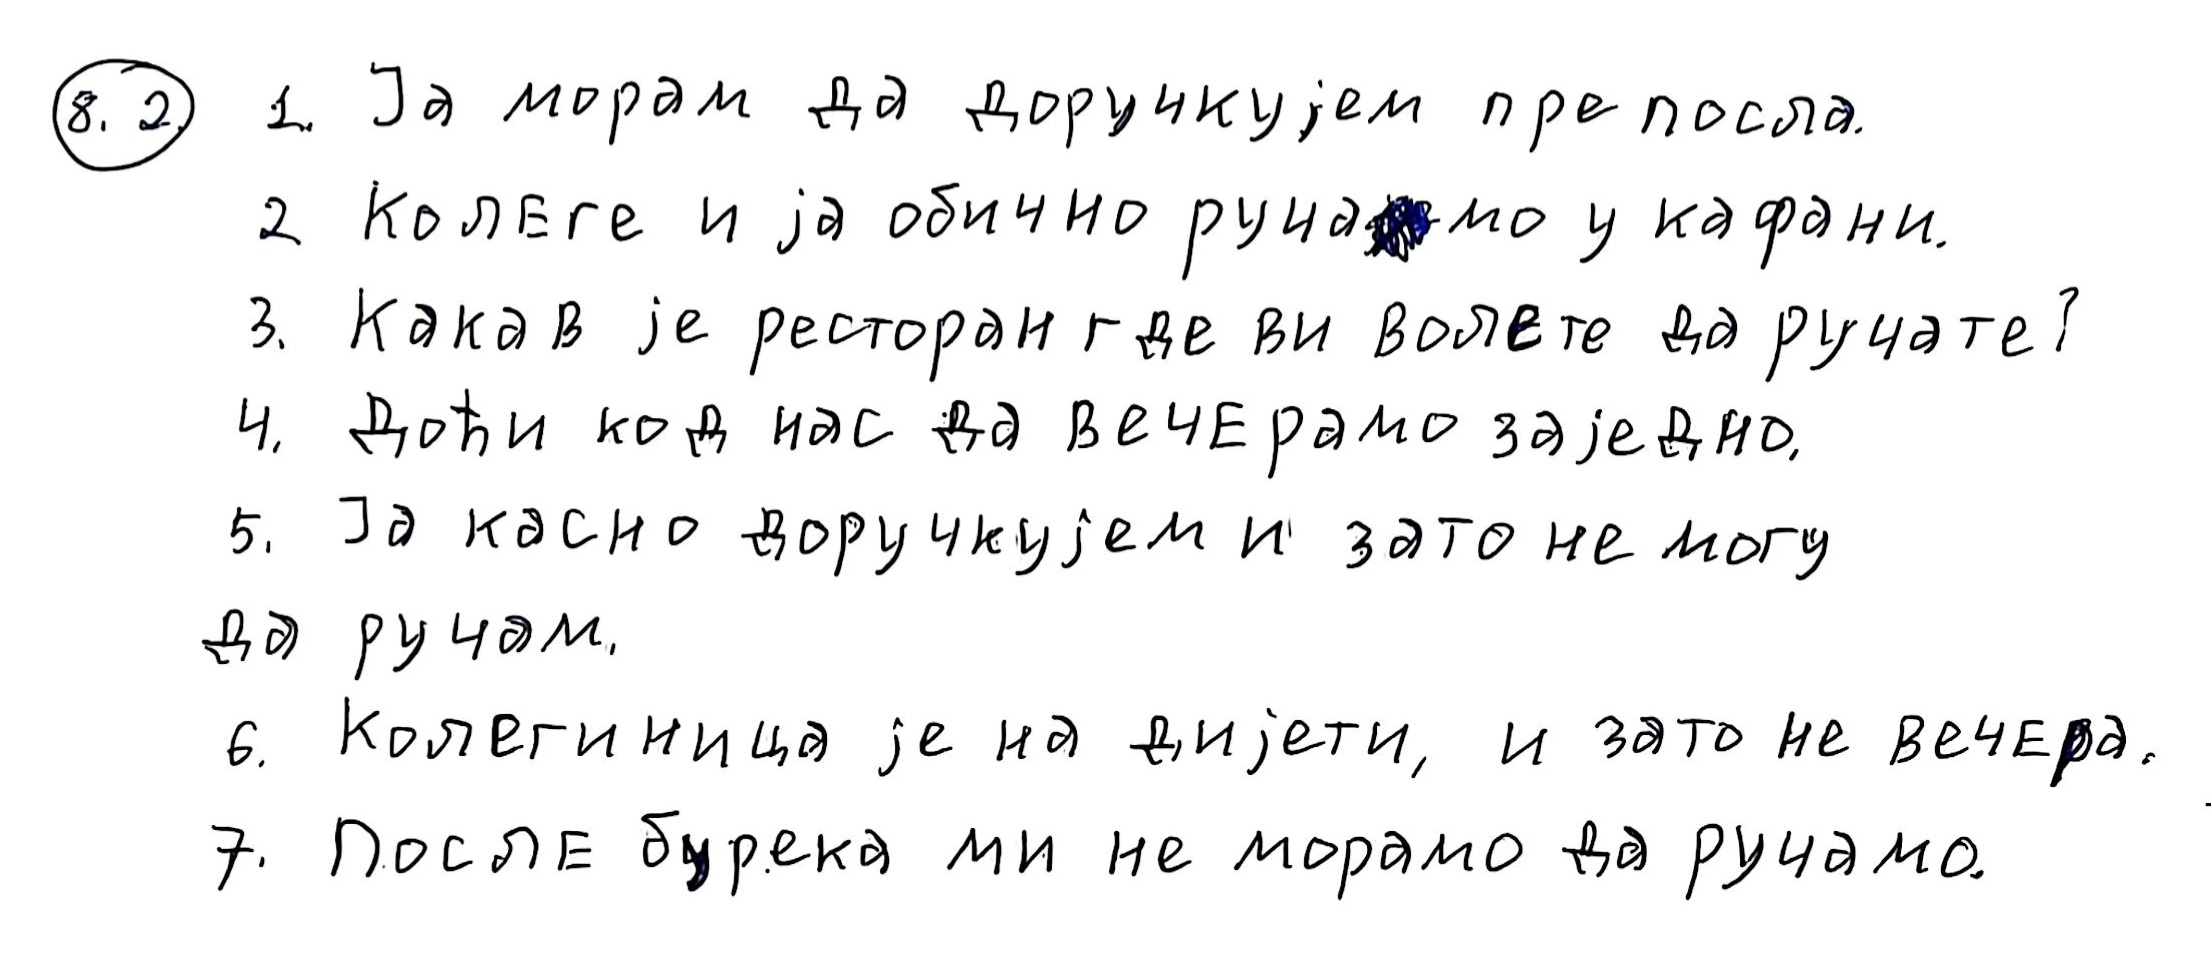 8.2. 1. Ја морам да доручкујем пре посла.
2 Колеге и ја обично ручамо у кафани.
3. Какав је ресторан где ви волете да ручате?
4. Дођи код нас да вечерамо заједно.
5. Ја касно доручкујем и зато не могу
да ручам.
6. Колегиница је на дијети, и зато не вечера.
7. После бурека ми не морамо да ручамо.